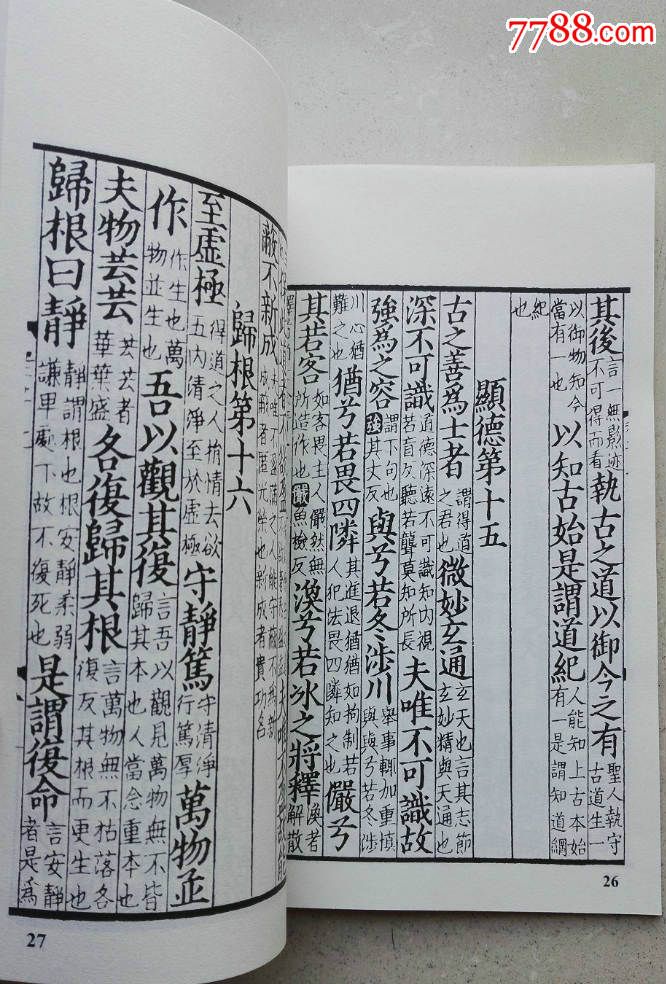 7788.com
其後言一無影迹不可得而看執古之道以御今之有聖人執守古道生一
以御物知今當有一也以知古始是謂道紀人能知上古本始有一是謂知道綱
紀也
顯德第十五
古之善為士者謂得道之君也微妙玄通玄天也言其志節玄妙精與天通也
深不可識道德深遠不可識知內視若盲反聽若聾莫知所長夫唯不可識故
強為之容謂下句也強其丈反與兮若冬涉川舉事輒加重慎與與兮若冬涉
川心猶難之也猶兮若畏四隣其進退猶猶如拘制若人犯法畏四隣知之也儼兮
其若客如客畏主人儼然無所造作也儼魚檢反渙兮若冰之將釋渙者解散
26
敝不新成
歸根第十六
至虛極得道之人捐情去欲五內清淨至於虛極守靜篤守清淨行篤厚萬物並
作作生也萬物並生也吾以觀其復言吾以觀見萬物無不皆歸其本也人當念重本也
夫物芸芸芸芸者華葉盛各復歸其根言萬物無不枯落各復反其根而更生也
歸根曰靜靜謂根也根安靜柔弱謙卑處下故不復死也是謂復命言安靜者是為
27